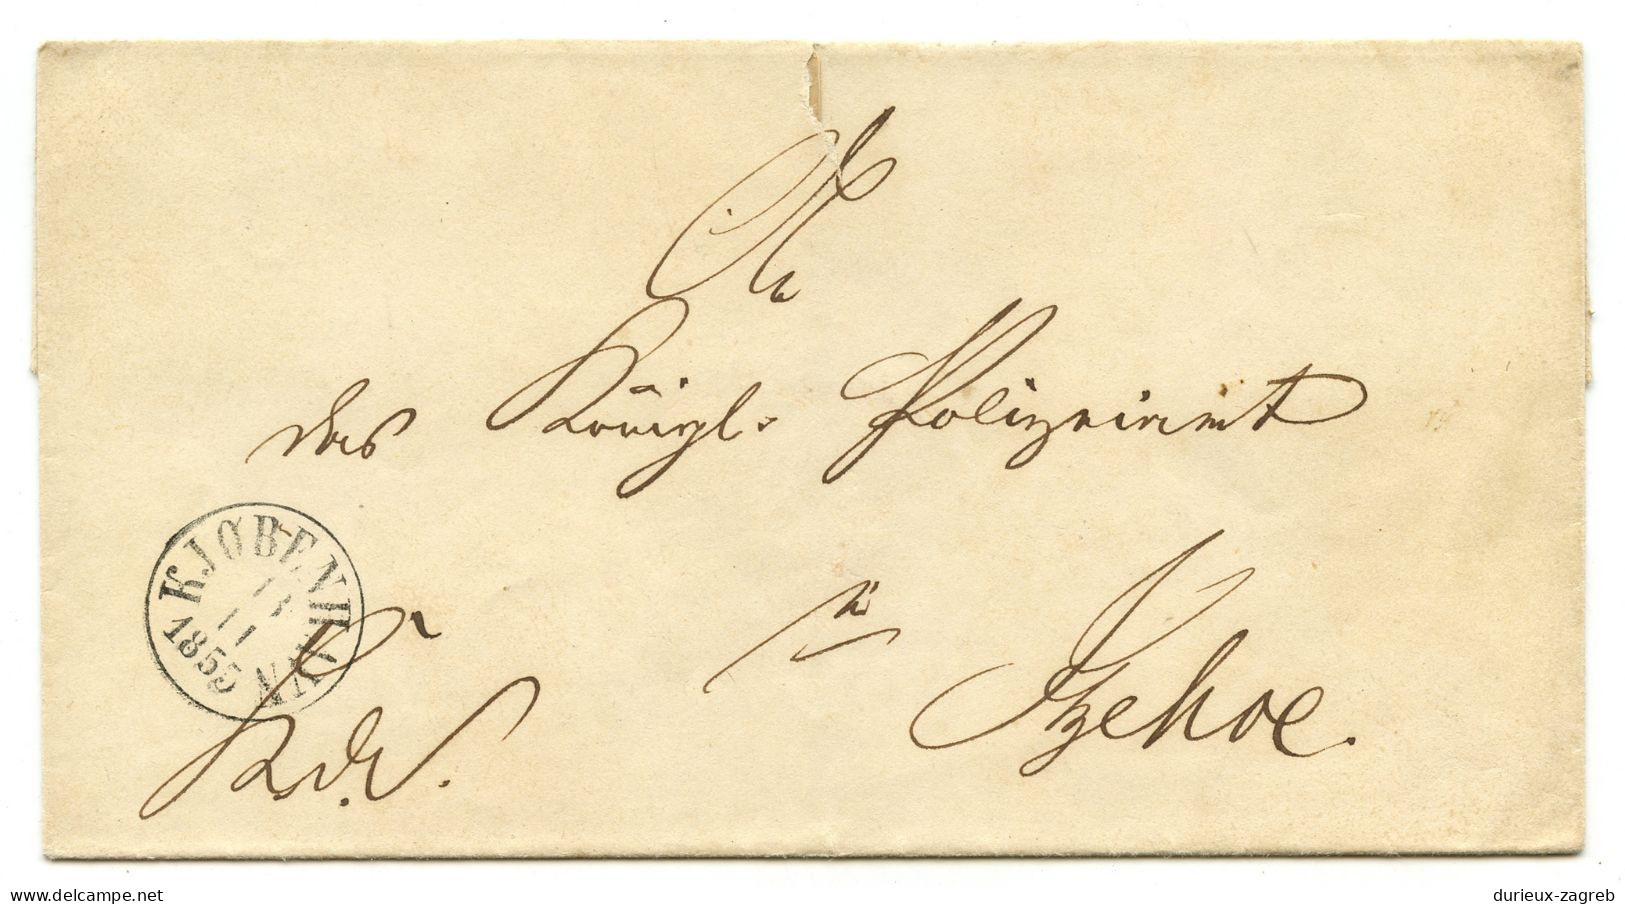 An
das Königl. Polizeiamt
zu
Itzehoe.
KJØBENHAVN
1855
K. d. S.
delcampe.net
durieux-zagreb